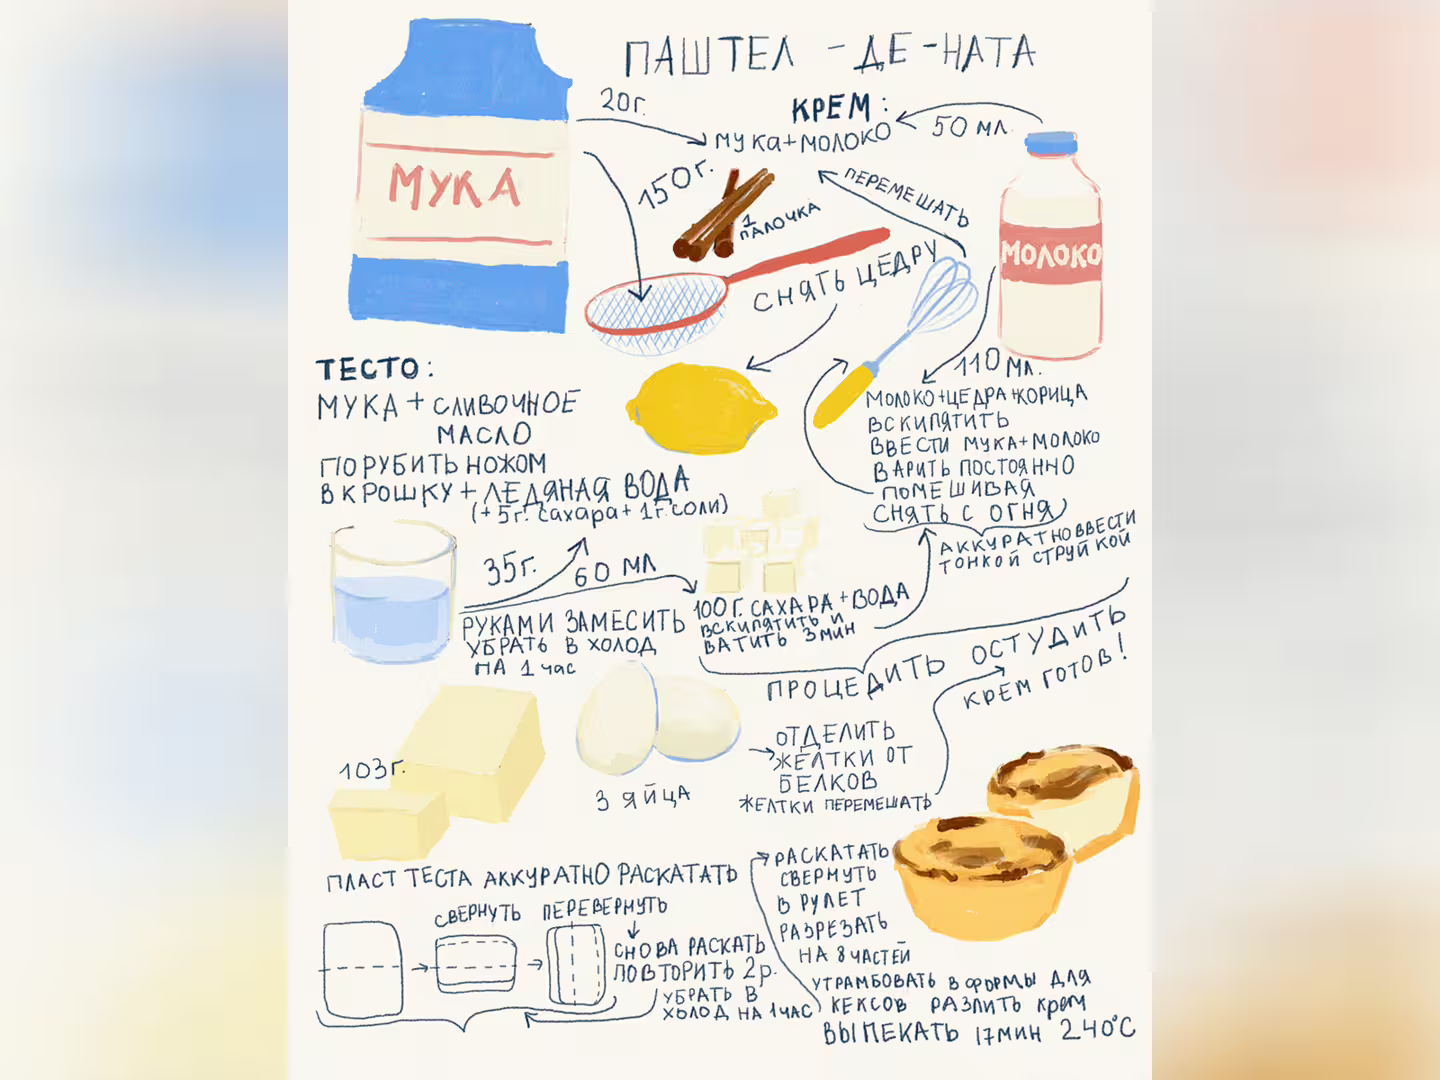 ПАШТЕЛ - ДЕ - НАТА
МУКА
20г.
КРЕМ:
МУКА+МОЛОКО
50 МЛ.
МОЛОКО
150г.
1
ПАЛОЧКА
ПЕРЕМЕШАТЬ
СНЯТЬ ЦЕДРУ
110 МЛ.
МОЛОКО+ЦЕДРА+КОРИЦА
ВСКИПЯТИТЬ
ВВЕСТИ МУКА+МОЛОКО
ВАРИТЬ ПОСТОЯННО
ПОМЕШИВАЯ
СНЯТЬ С ОГНЯ
АККУРАТНО ВВЕСТИ
ТОНКОЙ СТРУЙКОЙ
ТЕСТО:
МУКА + СЛИВОЧНОЕ
МАСЛО
ПОРУБИТЬ НОЖОМ
В КРОШКУ + ЛЕДЯНАЯ ВОДА
(+ 5г. сахара + 1г. соли)
35г.
60 МЛ
РУКАМИ ЗАМЕСИТЬ
УБРАТЬ В ХОЛОД
НА 1 час
100 Г. САХАРА + ВОДА
ВСКИПЯТИТЬ И
ВАТИТЬ 3 МИН
ПРОЦЕДИТЬ ОСТУДИТЬ
КРЕМ ГОТОВ!
103г.
3 ЯЙЦА
ОТДЕЛИТЬ
ЖЕЛТКИ ОТ
БЕЛКОВ
ЖЕЛТКИ ПЕРЕМЕШАТЬ
ПЛАСТ ТЕСТА АККУРАТНО РАСКАТАТЬ
СВЕРНУТЬ
ПЕРЕВЕРНУТЬ
СНОВА РАСКАТЬ
ПОВТОРИТЬ 2р.
УБРАТЬ В
ХОЛОД НА 1 ЧАС
РАСКАТАТЬ
СВЕРНУТЬ
В РУЛЕТ
РАЗРЕЗАТЬ
НА 8 ЧАСТЕЙ
УТРАМБОВАТЬ В ФОРМЫ ДЛЯ
КЕКСОВ РАЗЛИТЬ крем
ВЫПЕКАТЬ 17 МИН 240°С